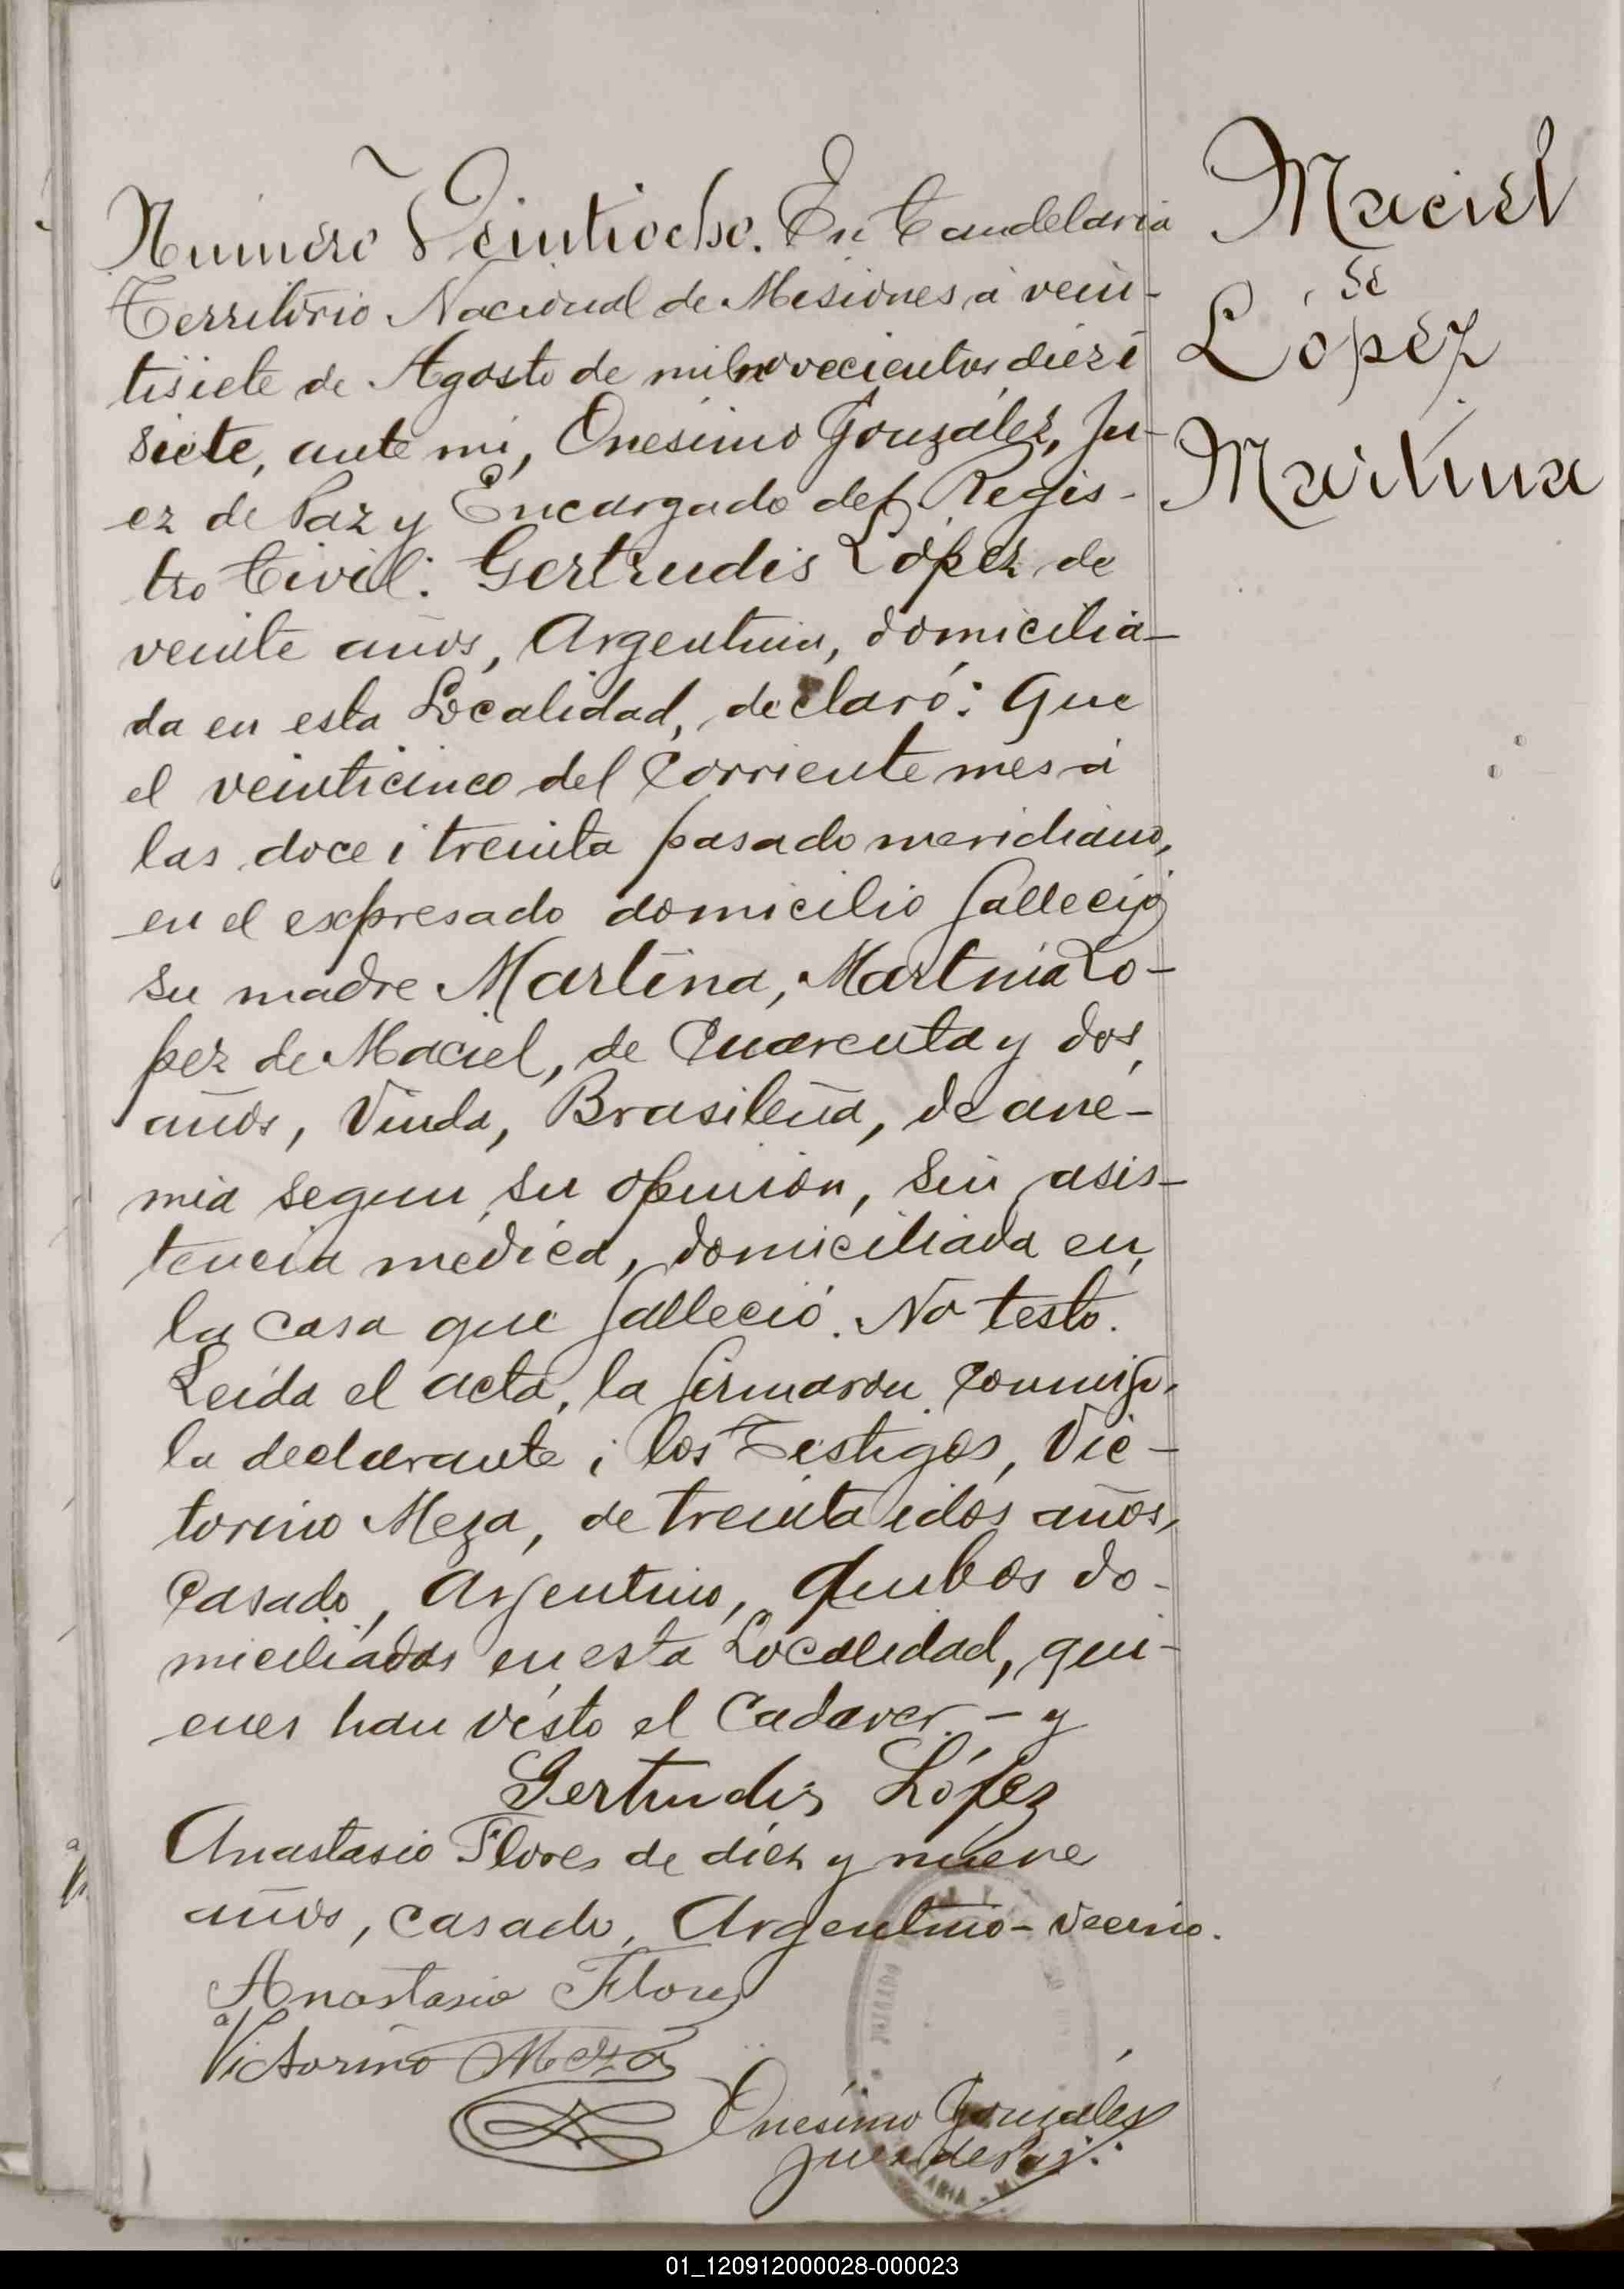 Número Veintiocho. En Candelaria
Territorio Nacional de Misiones á vein-
tisiete de Agosto de mil novecientos diez i
siete, ante mi, Onesimo González, Ju-
ez de Paz y Encargado del Regis-
tro Civil: Gertrudis López de
veinte años, Argentina, domicilia-
da en esta Localidad, declaró: Que
el veinticinco del Corriente mes á
las doce i treinta pasado meridiano,
en el expresado domicilio falleció
su madre Martina, Martina Lo-
pez de Maciel, de Cuarenta y dos
años, Viuda, Brasileña, de ane-
mia segun su opinión, sin asis-
tencia medica, domiciliada en
la casa que falleció. No testo.
Leida el acta, la firmaron conmigo,
la declarante i los Testigos, Vic-
torino Meza, de treinta idos años,
Casado, Argentino, Ambos do-
miciliados en esta Localidad, qui-
enes han visto el Cadaver. - y
Gertrudis López
Anastasio Flores de diez y nueve
años, casado, Argentino - vecino.
Anastasio Flores
Victorino Meza
Onésimo González
Juez de Paz
Maciel
de
López
Martina
01_120912000028-000023